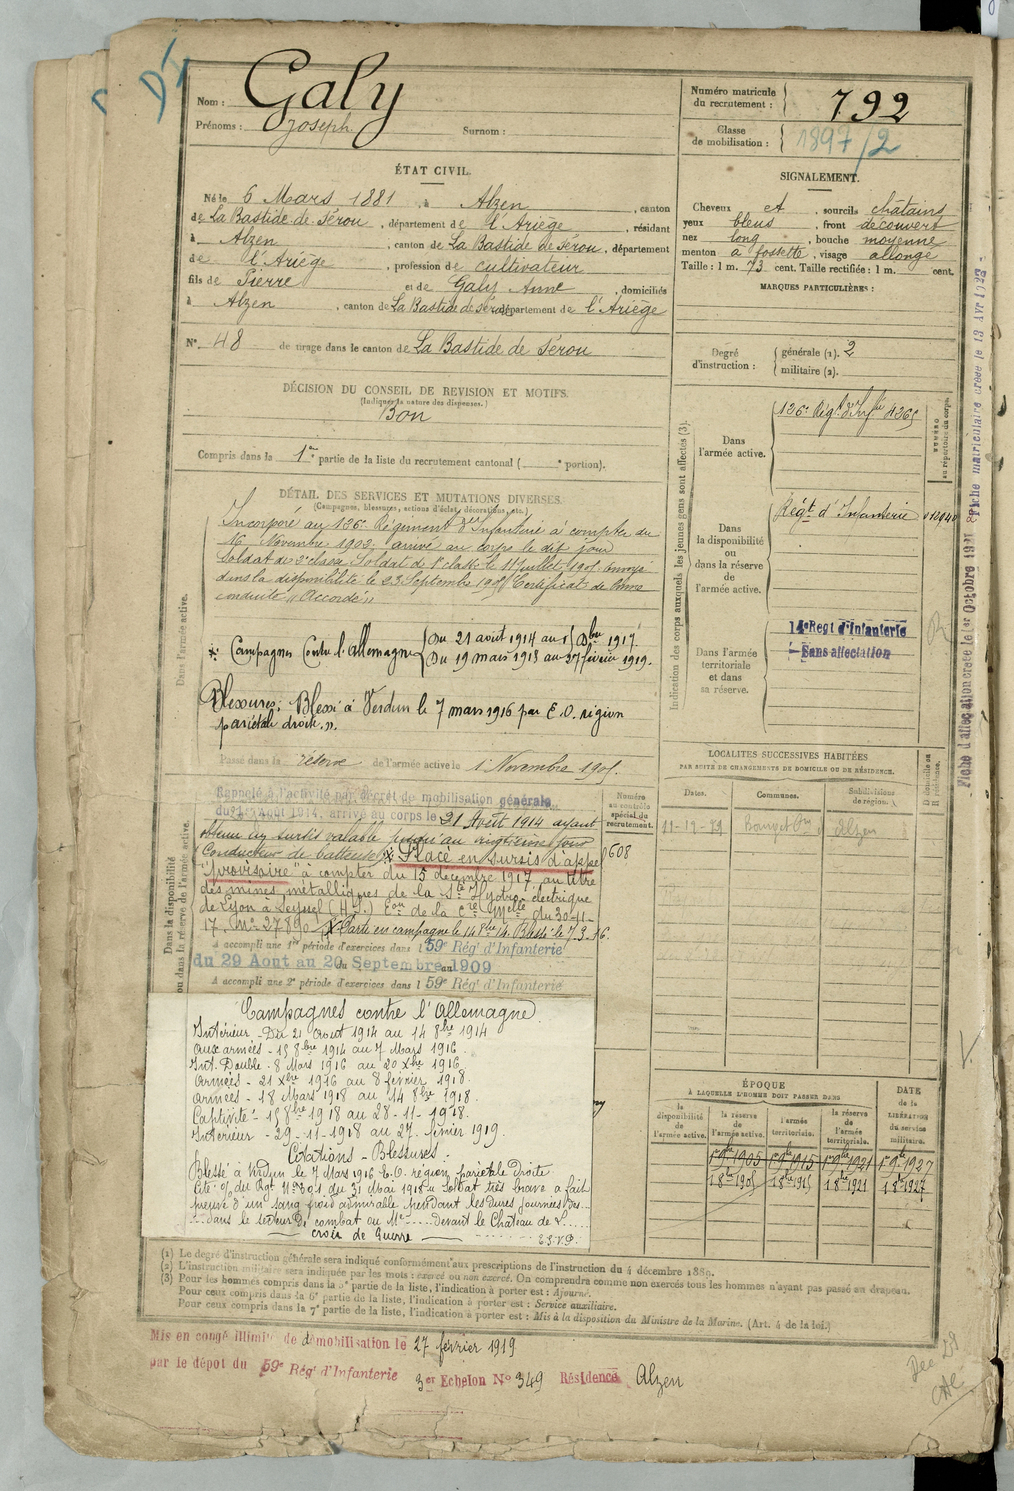 DI
Nom : Galy
Prénoms : Joseph Surnom :
Numéro matricule du recrutement : 792
Classe de mobilisation : 1897/2
ÉTAT CIVIL.
Né le 6 Mars 1881, à Alzen, canton
de La Bastide de Sérou, département de l'Ariège, résidant
à Alzen, canton de La Bastide de Sérou, département
de l'Ariège, profession de cultivateur
fils de Pierre et de Galy Anne, domiciliés
à Alzen, canton de La Bastide de Sérou département de l'Ariège
N° 48 de tirage dans le canton de La Bastide de Sérou
SIGNALEMENT.
Cheveux et, sourcils châtains
yeux bleus, front découvert
nez long, bouche moyenne
menton à fossette, visage allongé
Taille : 1 m. 73 cent. Taille rectifiée : 1 m. cent.
MARQUES PARTICULIÈRES :
Degré d'instruction : générale (1). 2
militaire (2).
DÉCISION DU CONSEIL DE REVISION ET MOTIFS.
(Indiquer la nature des dispenses.)
Bon
Compris dans la 1re partie de la liste du recrutement cantonal ( e portion).
DÉTAIL DES SERVICES ET MUTATIONS DIVERSES.
(Campagnes, blessures, actions d'éclat, décorations, etc.)
Dans l'armée active.
Incorporé au 126e Régiment d'Infanterie à compter du
16 Novembre 1902. arrivé au corps le dit jour
Soldat de 2e classe. Soldat de 1e classe le 11 Juillet 1905. Envoyé
dans la disponibilité le 23 Septembre 1905. Certificat de bonne
conduite "Accordé"
Campagnes Contre l'Allemagne Du 21 août 1914 au 15 Dbre 1917
Du 19 mars 1918 au 27 février 1919.
Blessures : Blessé à Verdun le 7 mars 1916 par E.O. région
pariétale droite.
Passé dans la réserve de l'armée active le 1 Novembre 1905.
Dans la disponibilité ou dans la réserve de l'armée active.
Rappelé à l'activité par décret de mobilisation générale
du 1er Août 1914, arrivé au corps le 21 Août 1914 ayant
obtenu un sursis valable jusqu'au vingtième jour
Conducteur de batteuse Placé en sursis d'appel
"provisoire" à compter du 15 décembre 1917 au titre
des mines métalliques de la Sté Hydro-électrique
de Lyon à Seyssel (H.S.) Eon de la Cre Mlle du 30-11-
17, No 27890 Parti en campagne le 14 8bre 14. Blessé le 7.3.16.
A accompli une 1re période d'exercices dans l 59e Rég' d'Infanterie
du 29 Aout au 20 Septembre 1909
A accompli une 2e période d'exercices dans l 59e Rég' d'Infanterie
Numéro au contrôle spécial du recrutement.
608
Campagnes contre l'Allemagne
Intérieur - Du 21 Aout 1914 au 14 8bre 1914
aux armées - 15 8bre 1914 au 7 Mars 1916
Int. Double - 8 Mars 1916 au 20 Xbre 1916
Armées - 21 Xbre 1916 au 8 février 1918.
Armées - 18 Mars 1918 au 14 8bre 1918.
Captivité - 15 8bre 1918 au 28-11-1918.
Intérieur - 29-11-1918 au 27 février 1919.
Citations - Blessures.
Blessé à Verdun le 7 Mars 1916 E.O. région pariétale droite
Cité o/ du Rgt No 301 du 31 Mai 1918 Soldat très brave a fait
preuve d'un sang froid admirable pendant les dures journées des...
dans le secteur combat ou Me devant le Château de L.....
croix de Guerre
Indication des corps auxquels les jeunes gens sont affectés (3).
Dans l'armée active.
126e Régt d'Infie 4265
NUMÉRO au répertoire du corps.
Dans la disponibilité ou dans la réserve de l'armée active.
Régt d'Infanterie
Dans l'armée territoriale et dans sa réserve.
14e Regt d'Infanterie
Sans affectation
Fiche d'affectation créée le 1er Octobre 1921
Fiche matriculaire créée le 13 Avr 1928
LOCALITÉS SUCCESSIVES HABITÉES
PAR SUITE DE CHANGEMENTS DE DOMICILE OU DE RÉSIDENCE.
Dates. Communes. Subdivisions de région. D domicile ou R résidence.
Alzen
ÉPOQUE
À LAQUELLE L'HOMME DOIT PASSER DANS
la disponibilité de l'armée active. la réserve de l'armée active. l'armée territoriale. la réserve de l'armée territoriale. DATE de la LIBÉRATION du service militaire.
1 9bre 1905 1 9bre 1915 1 9bre 1921 1 9bre 1927
1 8bre 1905 1 8bre 1915 1 8bre 1921 1 8bre 1927
(1) Le degré d'instruction générale sera indiqué conformément aux prescriptions de l'instruction du 4 décembre 1889.
(2) L'instruction militaire sera indiquée par les mots : exercé ou non exercé. On comprendra comme non exercés tous les hommes n'ayant pas passé au drapeau.
(3) Pour les hommes compris dans la 5e partie de la liste, l'indication à porter est : Ajourné.
Pour ceux compris dans la 6e partie de la liste, l'indication à porter est : Service auxiliaire.
Pour ceux compris dans la 7e partie de la liste, l'indication à porter est : Mis à la disposition du Ministre de la Marine. (Art. 4 de la loi.)
Mis en congé illimité de démobilisation le 27 février 1919
par le dépot du 59e Rég' d'Infanterie
3er Echelon No 349 Résidence Alzen